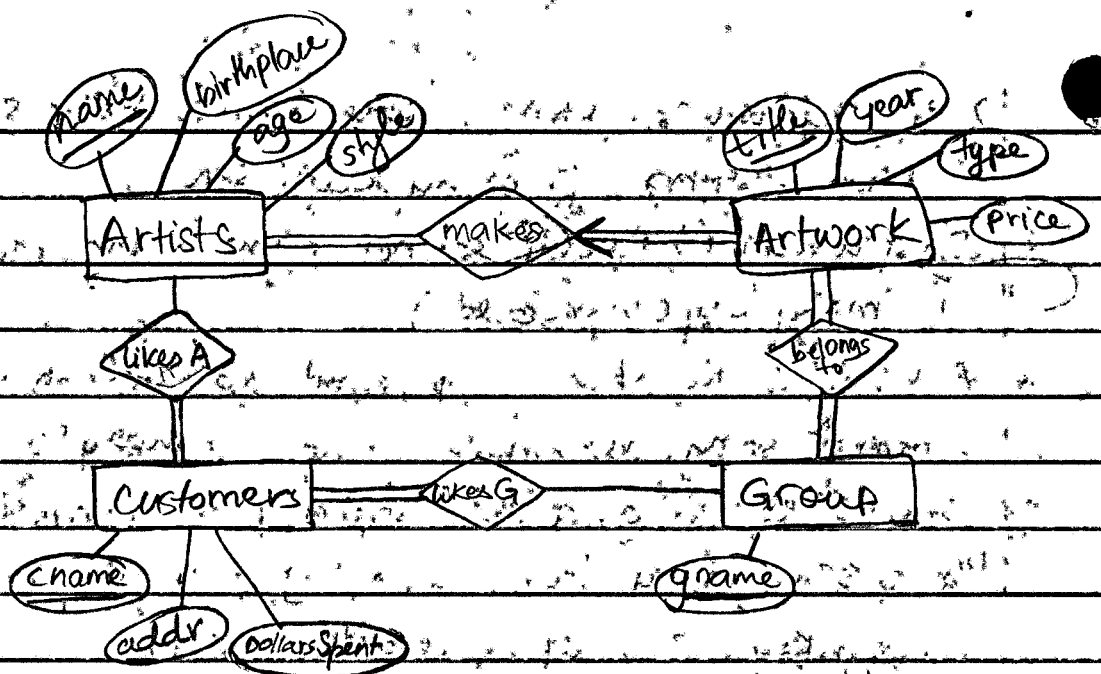 name
birthplace
age
style
title
year
type
price
Artists
makes
Artwork
likes A
belongs
to
Customers
likes G
Group
cname
addr.
DollarsSpent
gname